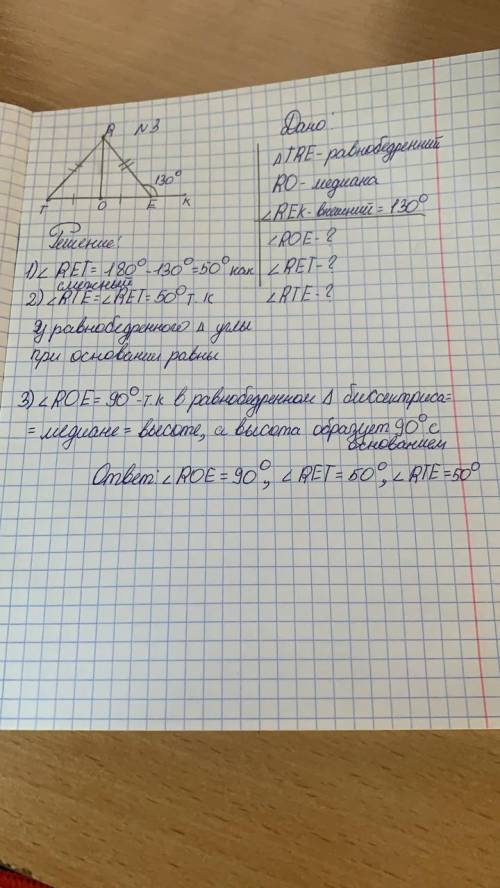 R N3
130°
T O E K
Дано:
△TRE - равнобедренний
RO - медиана
∠REK - внешний = 130°
∠ROE - ?
∠RET - ?
∠RTE - ?
Решение:
1) ∠RET = 180° - 130° = 50° как
смежный
2) ∠RTE = ∠RET = 50° т.к
у равнобедренного △ углы
при основании равны
3) ∠ROE = 90° - т.к в равнобедренном △ биссектриса =
= медиане = высоте, а высота образует 90° с
основанием
Ответ: ∠ROE = 90°, ∠RET = 50°, ∠RTE = 50°